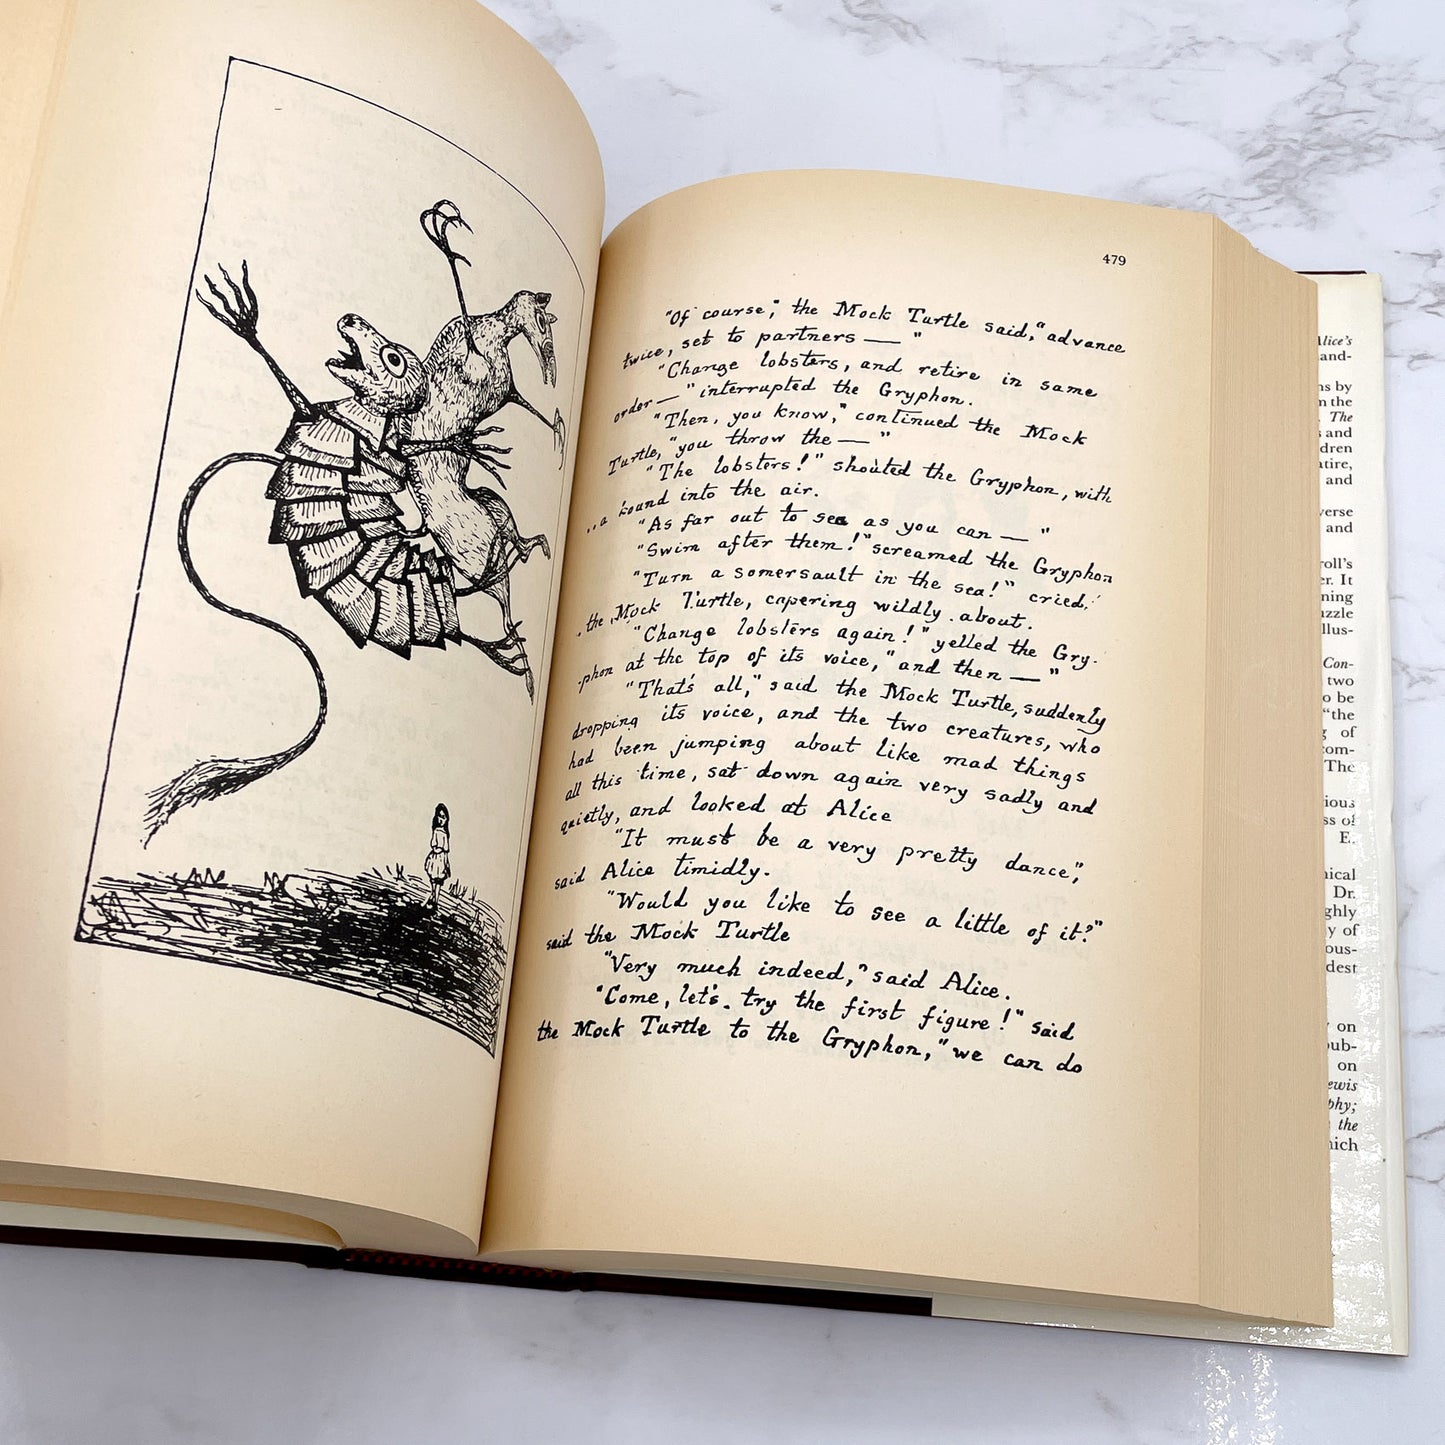 479
"Of course," the Mock Turtle said, "advance
twice, set to partners — "
"Change lobsters, and retire in same
order — " interrupted the Gryphon.
"Then, you know," continued the Mock
Turtle, "you throw the — "
"The lobsters!" shouted the Gryphon, with
a bound into the air.
"As far out to sea as you can — "
"Swim after them!" screamed the Gryphon
"Turn a somersault in the sea!" cried
the Mock Turtle, capering wildly about.
"Change lobsters again!" yelled the Gry-
phon at the top of its voice, "and then — "
"That's all," said the Mock Turtle, suddenly
dropping its voice, and the two creatures, who
had been jumping about like mad things
all this time, sat down again very sadly and
quietly, and looked at Alice
"It must be a very pretty dance,"
said Alice timidly.
"Would you like to see a little of it?"
said the Mock Turtle
"Very much indeed," said Alice.
"Come, let's try the first figure!" said
the Mock Turtle to the Gryphon, "we can do
Alice's
and-
ns by
n the
The
s and
dren
tire,
and
verse
and
roll's
er. It
ning
uzzle
illus-
Con-
two
o be
"the
g of
com-
The
ious
ss of
E.
nical
Dr.
ghly
y of
ous-
dest
y on
pub-
on
ewis
phy;
the
hich